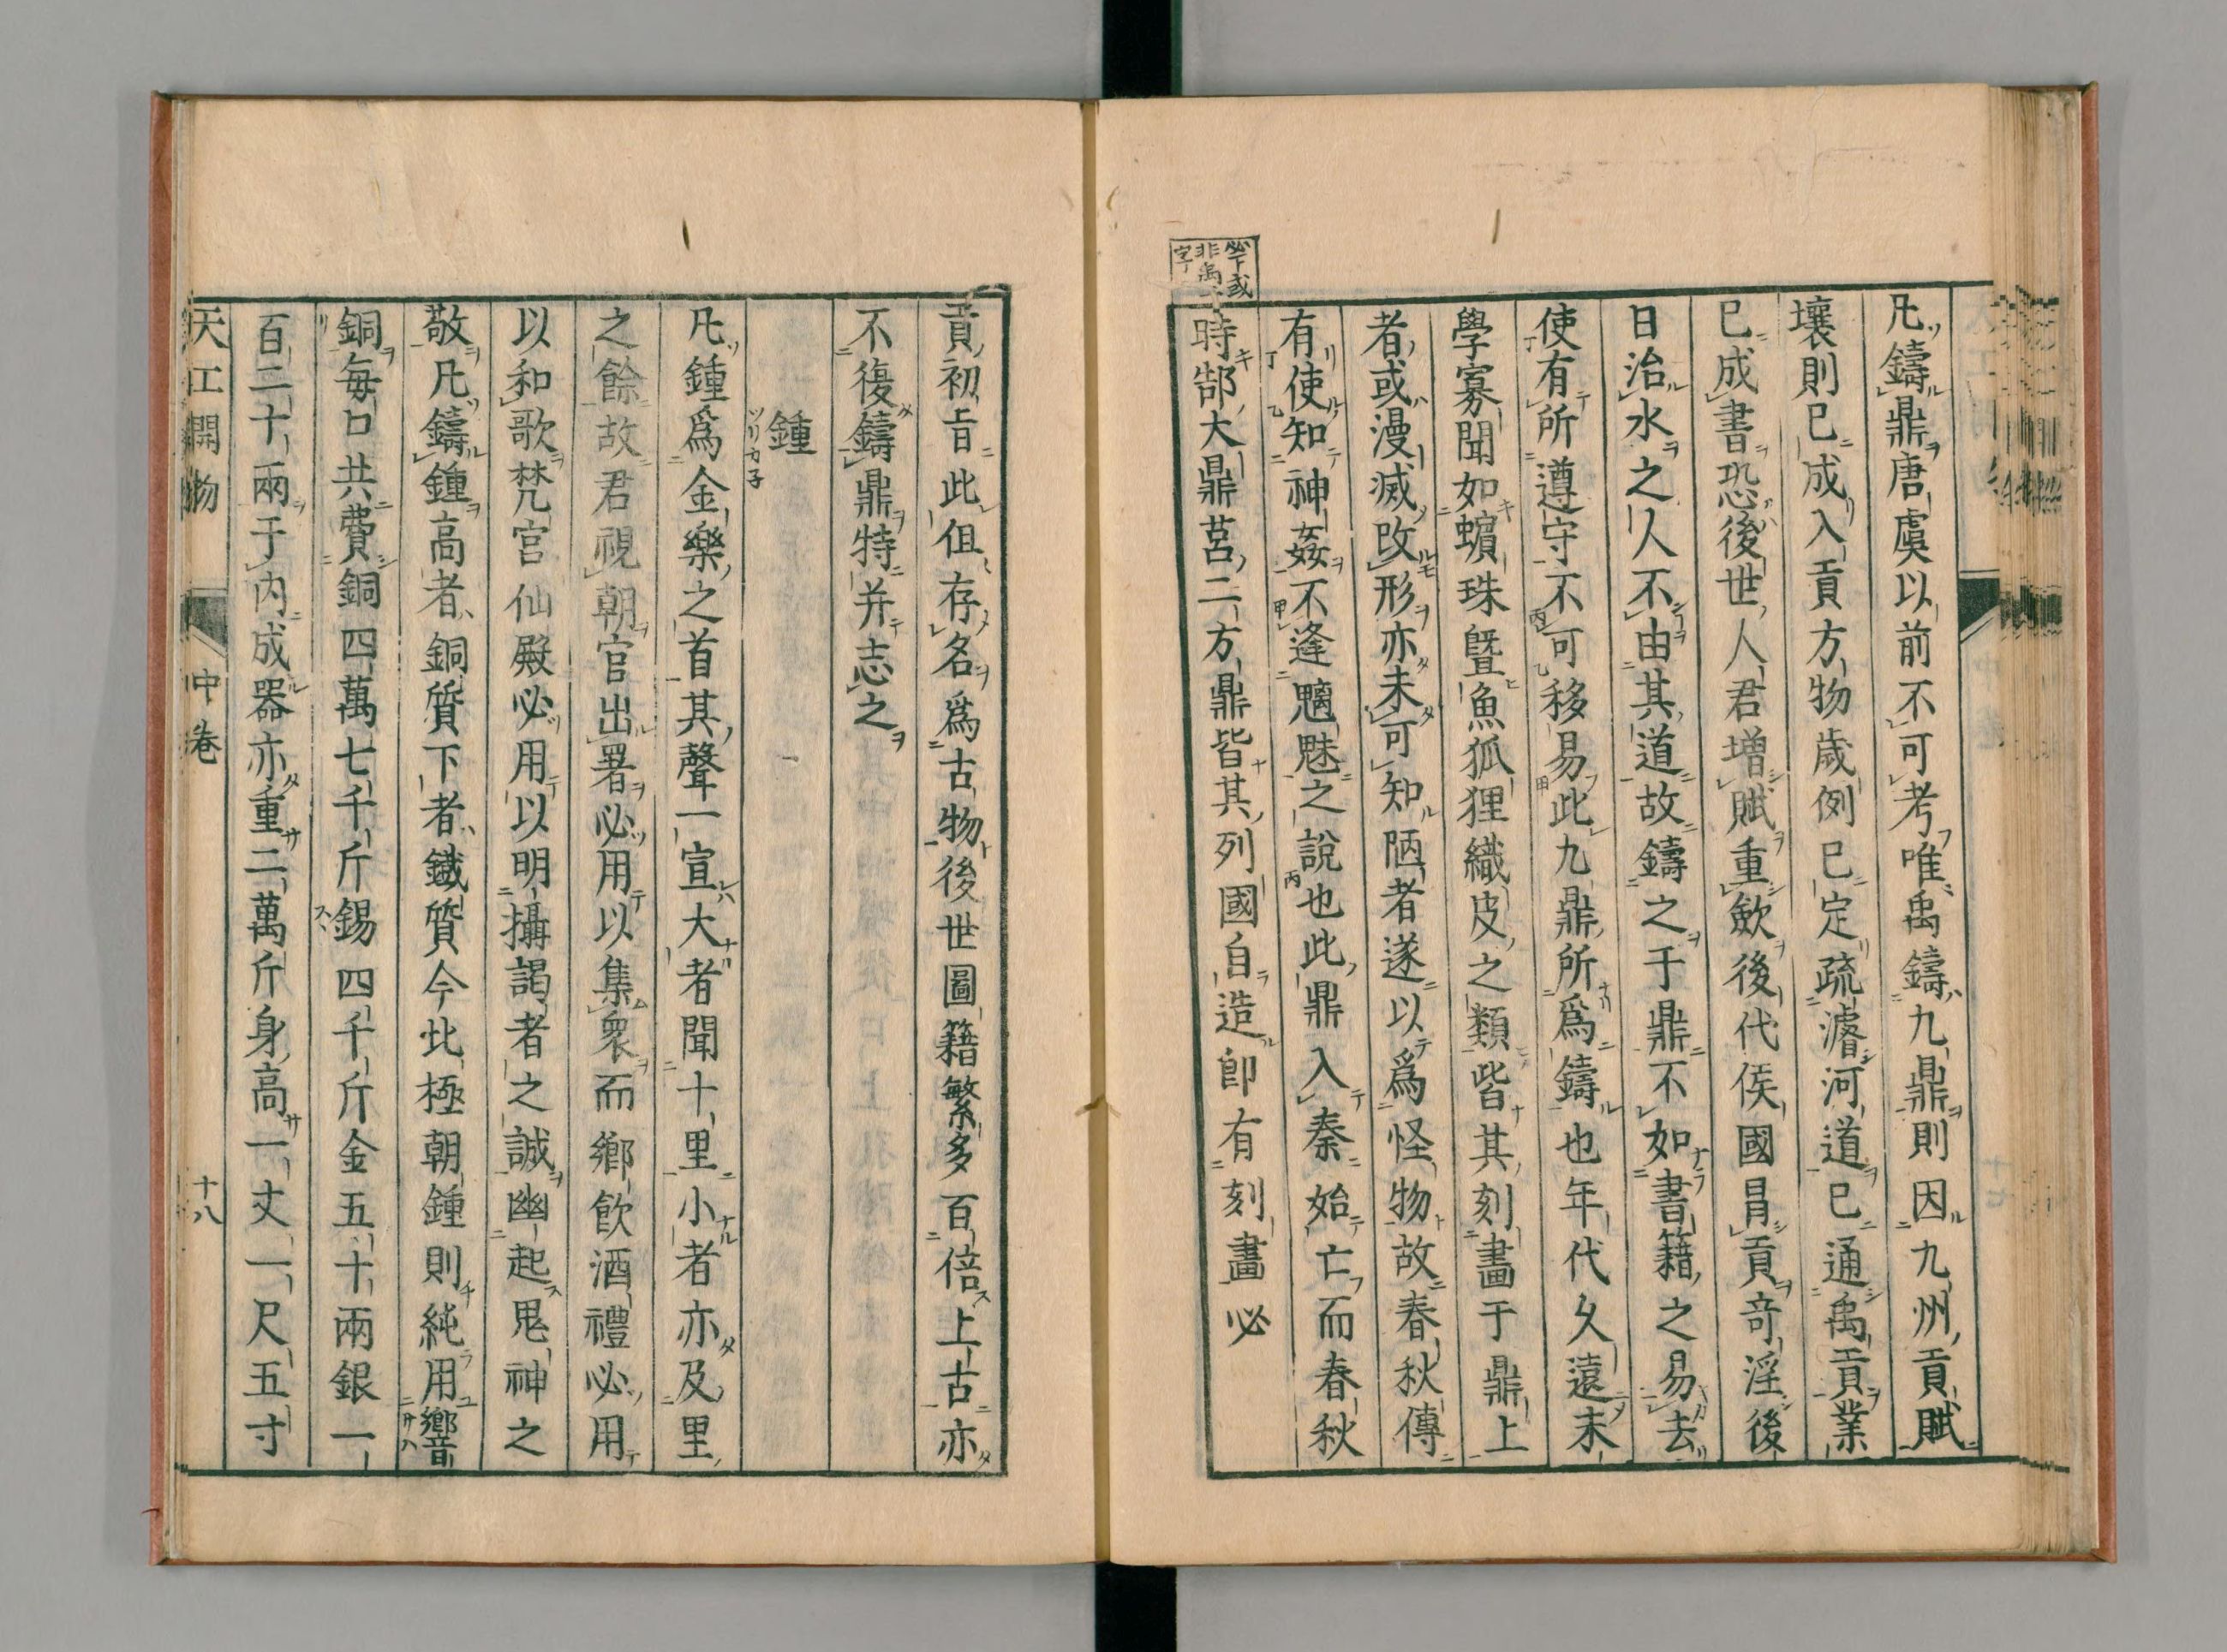 凡鑄鼎唐虞以前不可考唯禹鑄九鼎則因九州貢賦
壤則已成入貢方物歲例已定疏濬河道已通禹貢業
已成書恐後世人君增賦重歛後代侯國冒貢奇淫後
日治水之人不由其道故鑄之于鼎不如書籍之易去
使有所遵守不可移易此九鼎所爲鑄也年代久遠末
學寡聞如蠙珠曁魚狐狸織皮之類皆其刻畫于鼎上
者或漫滅改形亦未可知陋者遂以爲怪物故春秋傳
有使知神姦不逢魑魅之說也此鼎入秦始亡而春秋
時郜大鼎莒二方鼎皆其列國自造卽有刻畫必
必下或
非禹
字
貢初旨此但存名爲古物後世圖籍繁多百倍上古亦
不復鑄鼎特并志之
鍾
ツリカ子
凡鍾爲金樂之首其聲一宣大者聞十里小者亦及里
之餘故君視朝官出署必用以集衆而鄉飮酒禮必用
以和歌梵宮仙殿必用以明攝謁者之誠幽起鬼神之
敬凡鑄鍾高者銅質下者鐵質今北極朝鍾則純用響
銅每口共費銅四萬七千斤錫四千斤金五十兩銀一
百二十兩于內成器亦重二萬斤身高一丈一尺五寸
天工開物
中卷
十八